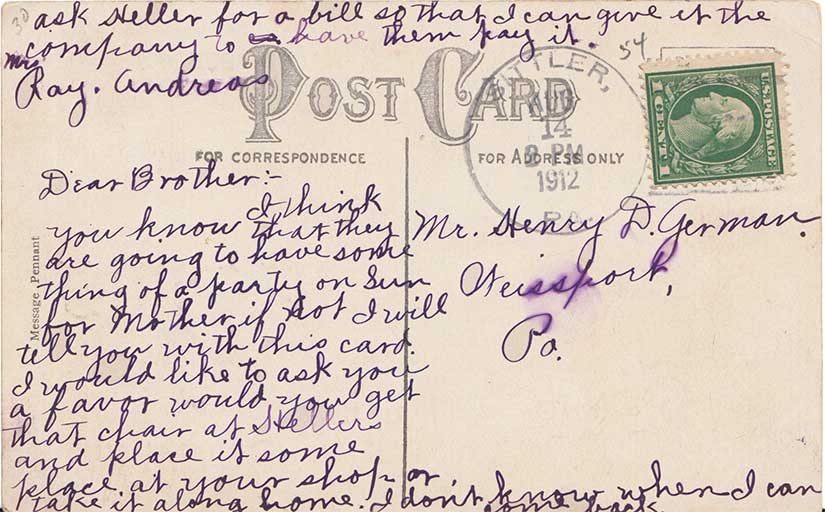 ask Heller for a bill so that I can give it the
company to have them pay it.
Mrs
Ray. Andreas
30
54
POST CARD
FOR CORRESPONDENCE
FOR ADDRESS ONLY
BUTLER,
AUG
14
PM
1912
PA.
U.S. POSTAGE
1 CENT 1
Message Pennant
Dear Brother:-
I think
you know that they
are going to have some
thing of a party on Sun
for Mother if not I will
tell you with this card.
I would like to ask you
a favor would you get
that chair at Hellers
and place it some
place at your shop or
take it along home. I don't know when I can
come back
Mr. Henry D. German.
Weissport,
Pa.